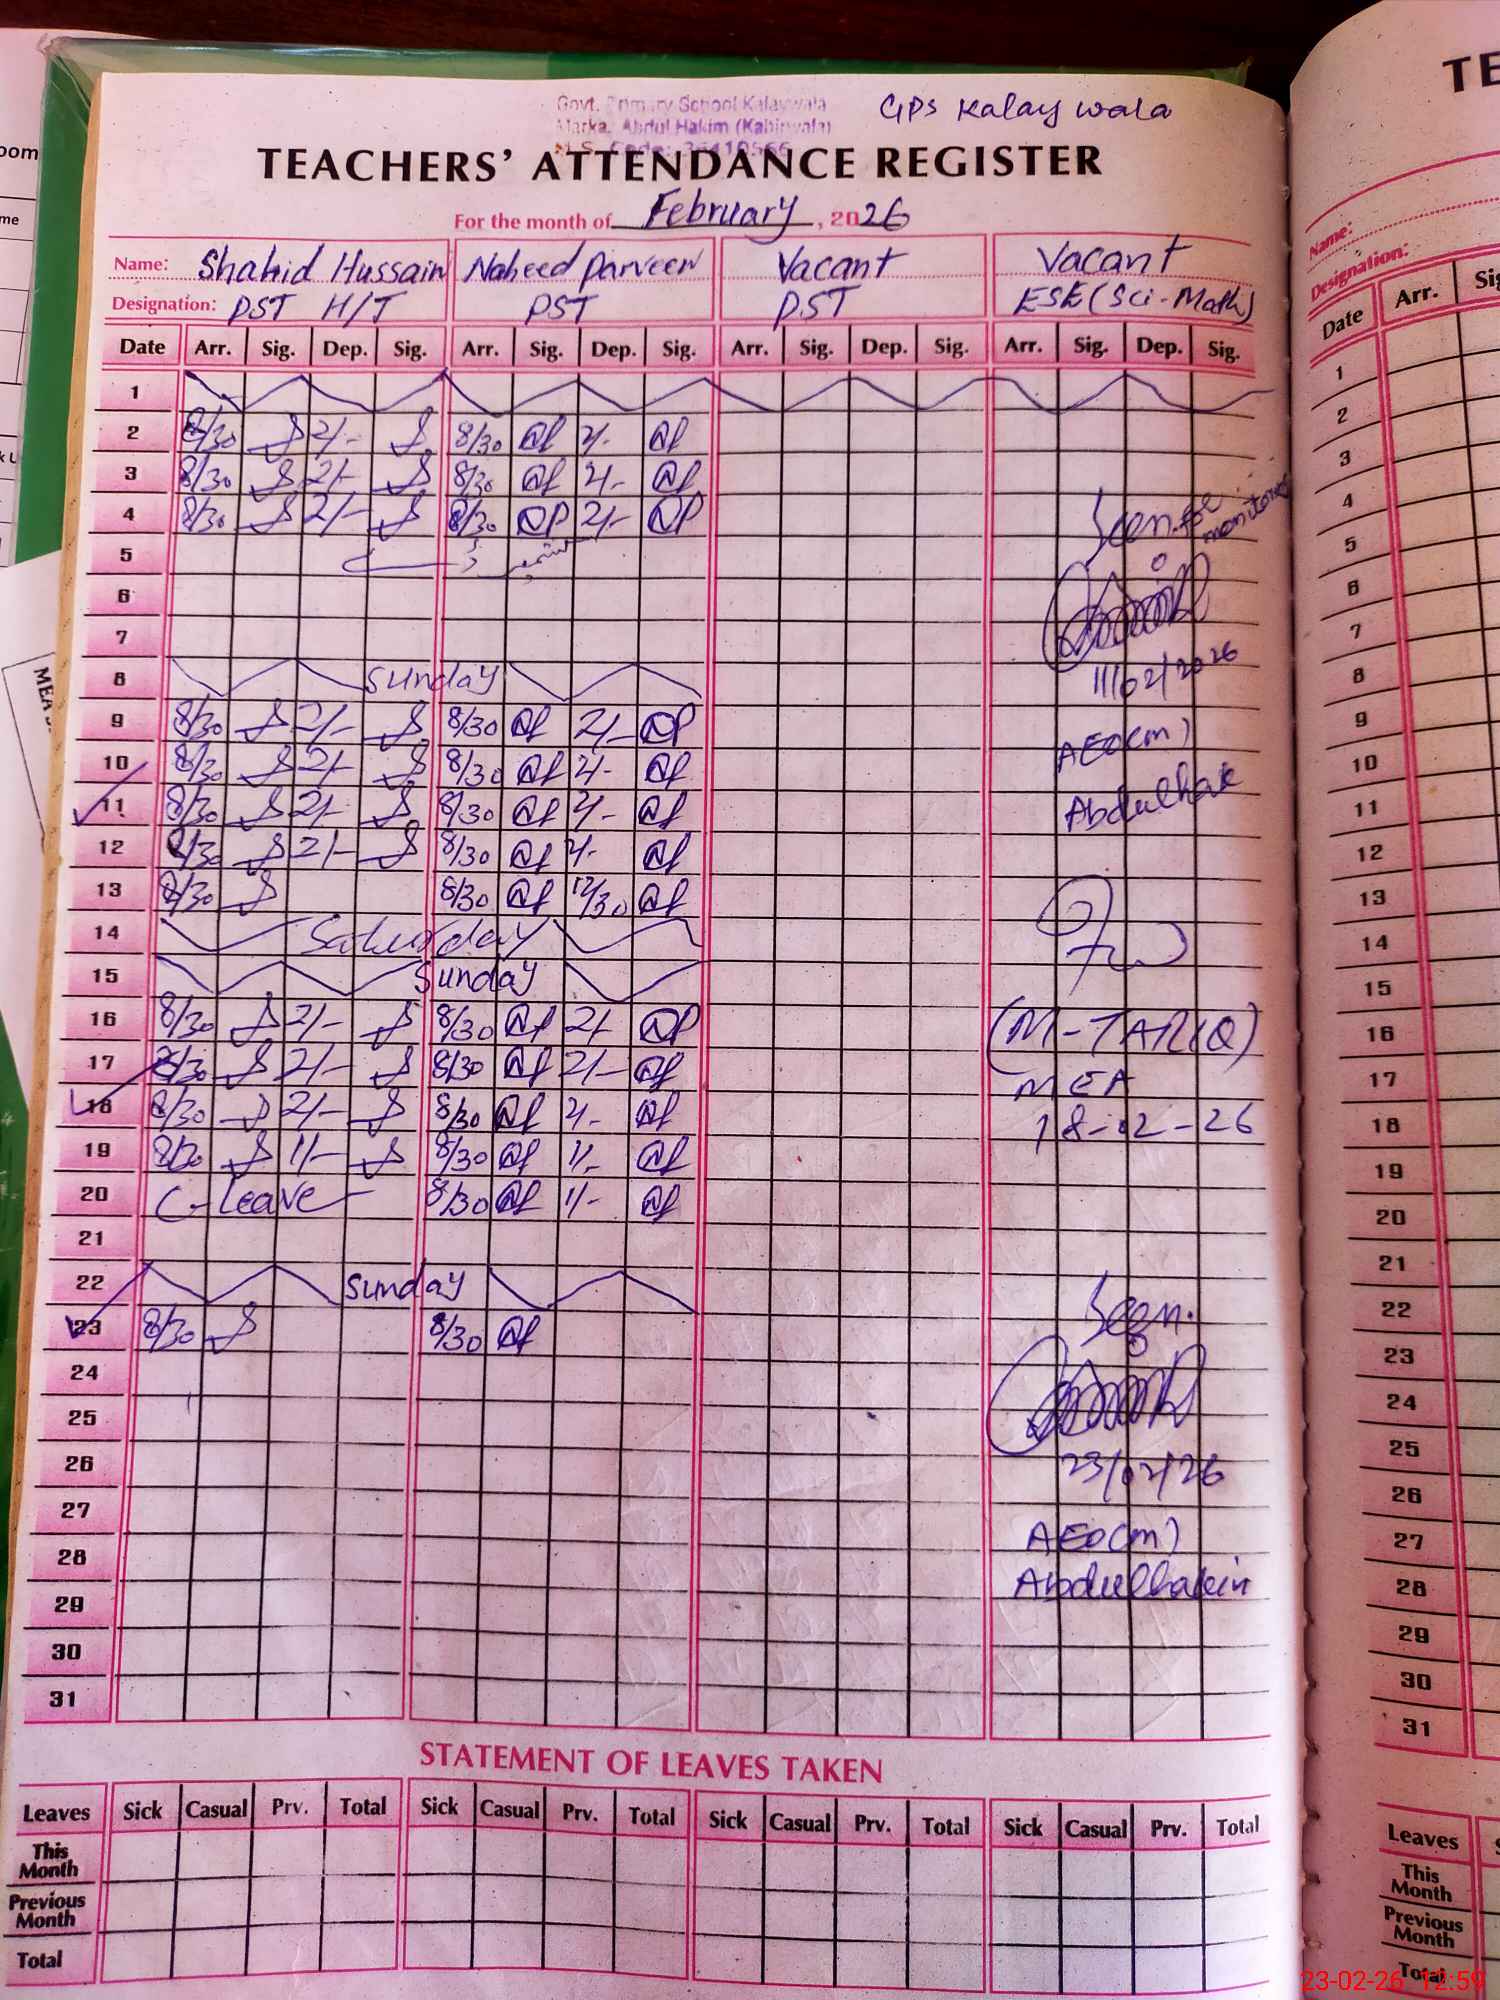 Govt. Primary School Kalaywala
Marka. Abdul Hakim (Kabirwala)
GPS Kalay wala
TEACHERS' ATTENDANCE REGISTER
For the month of February, 2026
Name: Shahid Hussain Naheed Parveen Vacant Vacant
Designation: PST H/T PST PST ESE (Sci-Math)
Date Arr. Sig. Dep. Sig. Arr. Sig. Dep. Sig. Arr. Sig. Dep. Sig. Arr. Sig. Dep. Sig.
1
2 8/30 2/- 8/30 2/-
3 8/30 2/- 8/30 2/-
4 8/30 2/- 8/30 2/-
Seen for monitoring
5
6
7
11/02/2026
8 Sunday
9 8/30 2/- 8/30 2/-
AEO(m)
10 8/30 2/- 8/30 2/-
11 8/30 2/- 8/30 2/-
12 8/30 2/- 8/30 2/-
13 8/30 8/30 12/30
14 Saturday
15 Sunday
16 8/30 2/- 8/30 2/- (M-TARIQ)
17 8/30 2/- 8/30 2/- MEA
18 8/30 2/- 8/30 2/- 18-02-26
19 8/30 1/- 8/30 1/-
20 C-Leave 8/30 1/-
21
22 Sunday
Seen.
23 8/30 8/30
24
25
26 23/02/26
27
AEO(m)
28 Abdulhakim
29
30
31
STATEMENT OF LEAVES TAKEN
Leaves Sick Casual Prv. Total Sick Casual Prv. Total Sick Casual Prv. Total Sick Casual Prv. Total
This Month
Previous Month
Total
TE
Name:
Designation:
Date Arr.
1
2
3
4
5
6
7
8
9
10
11
12
13
14
15
16
17
18
19
20
21
22
23
24
25
26
27
28
29
30
31
Leaves
This Month
Previous Month
Total
23-02-26 12:59